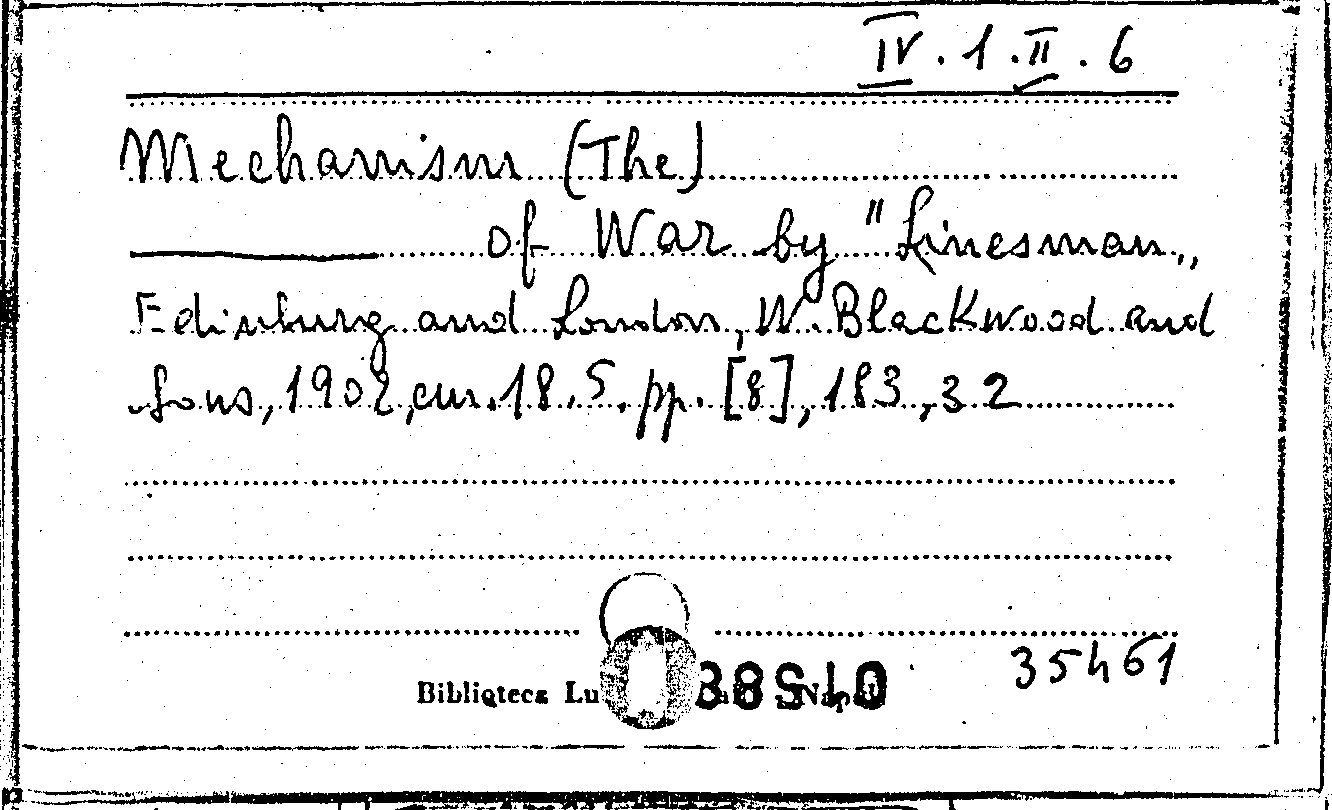 IV.1.II.6
Mechanism (The)
of War by "Linesman„
Edinburg and London, W. Blackwood and
Sons, 1902, cm. 18.5. pp. [8], 183, 32
35461
Biblioteca